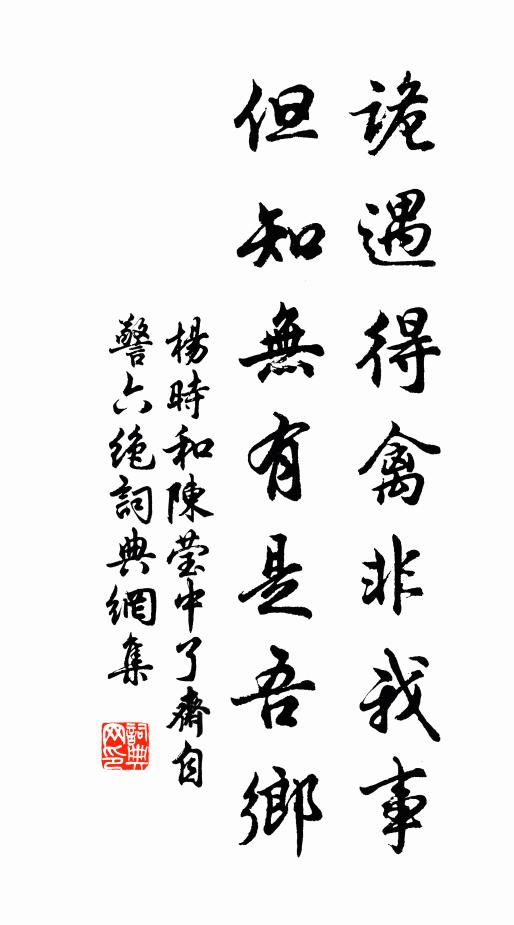 詭遇得禽非我事
但知無有是吾鄉
楊時和陳瑩中了齋自
警六絶詞典網集
詞典
网印